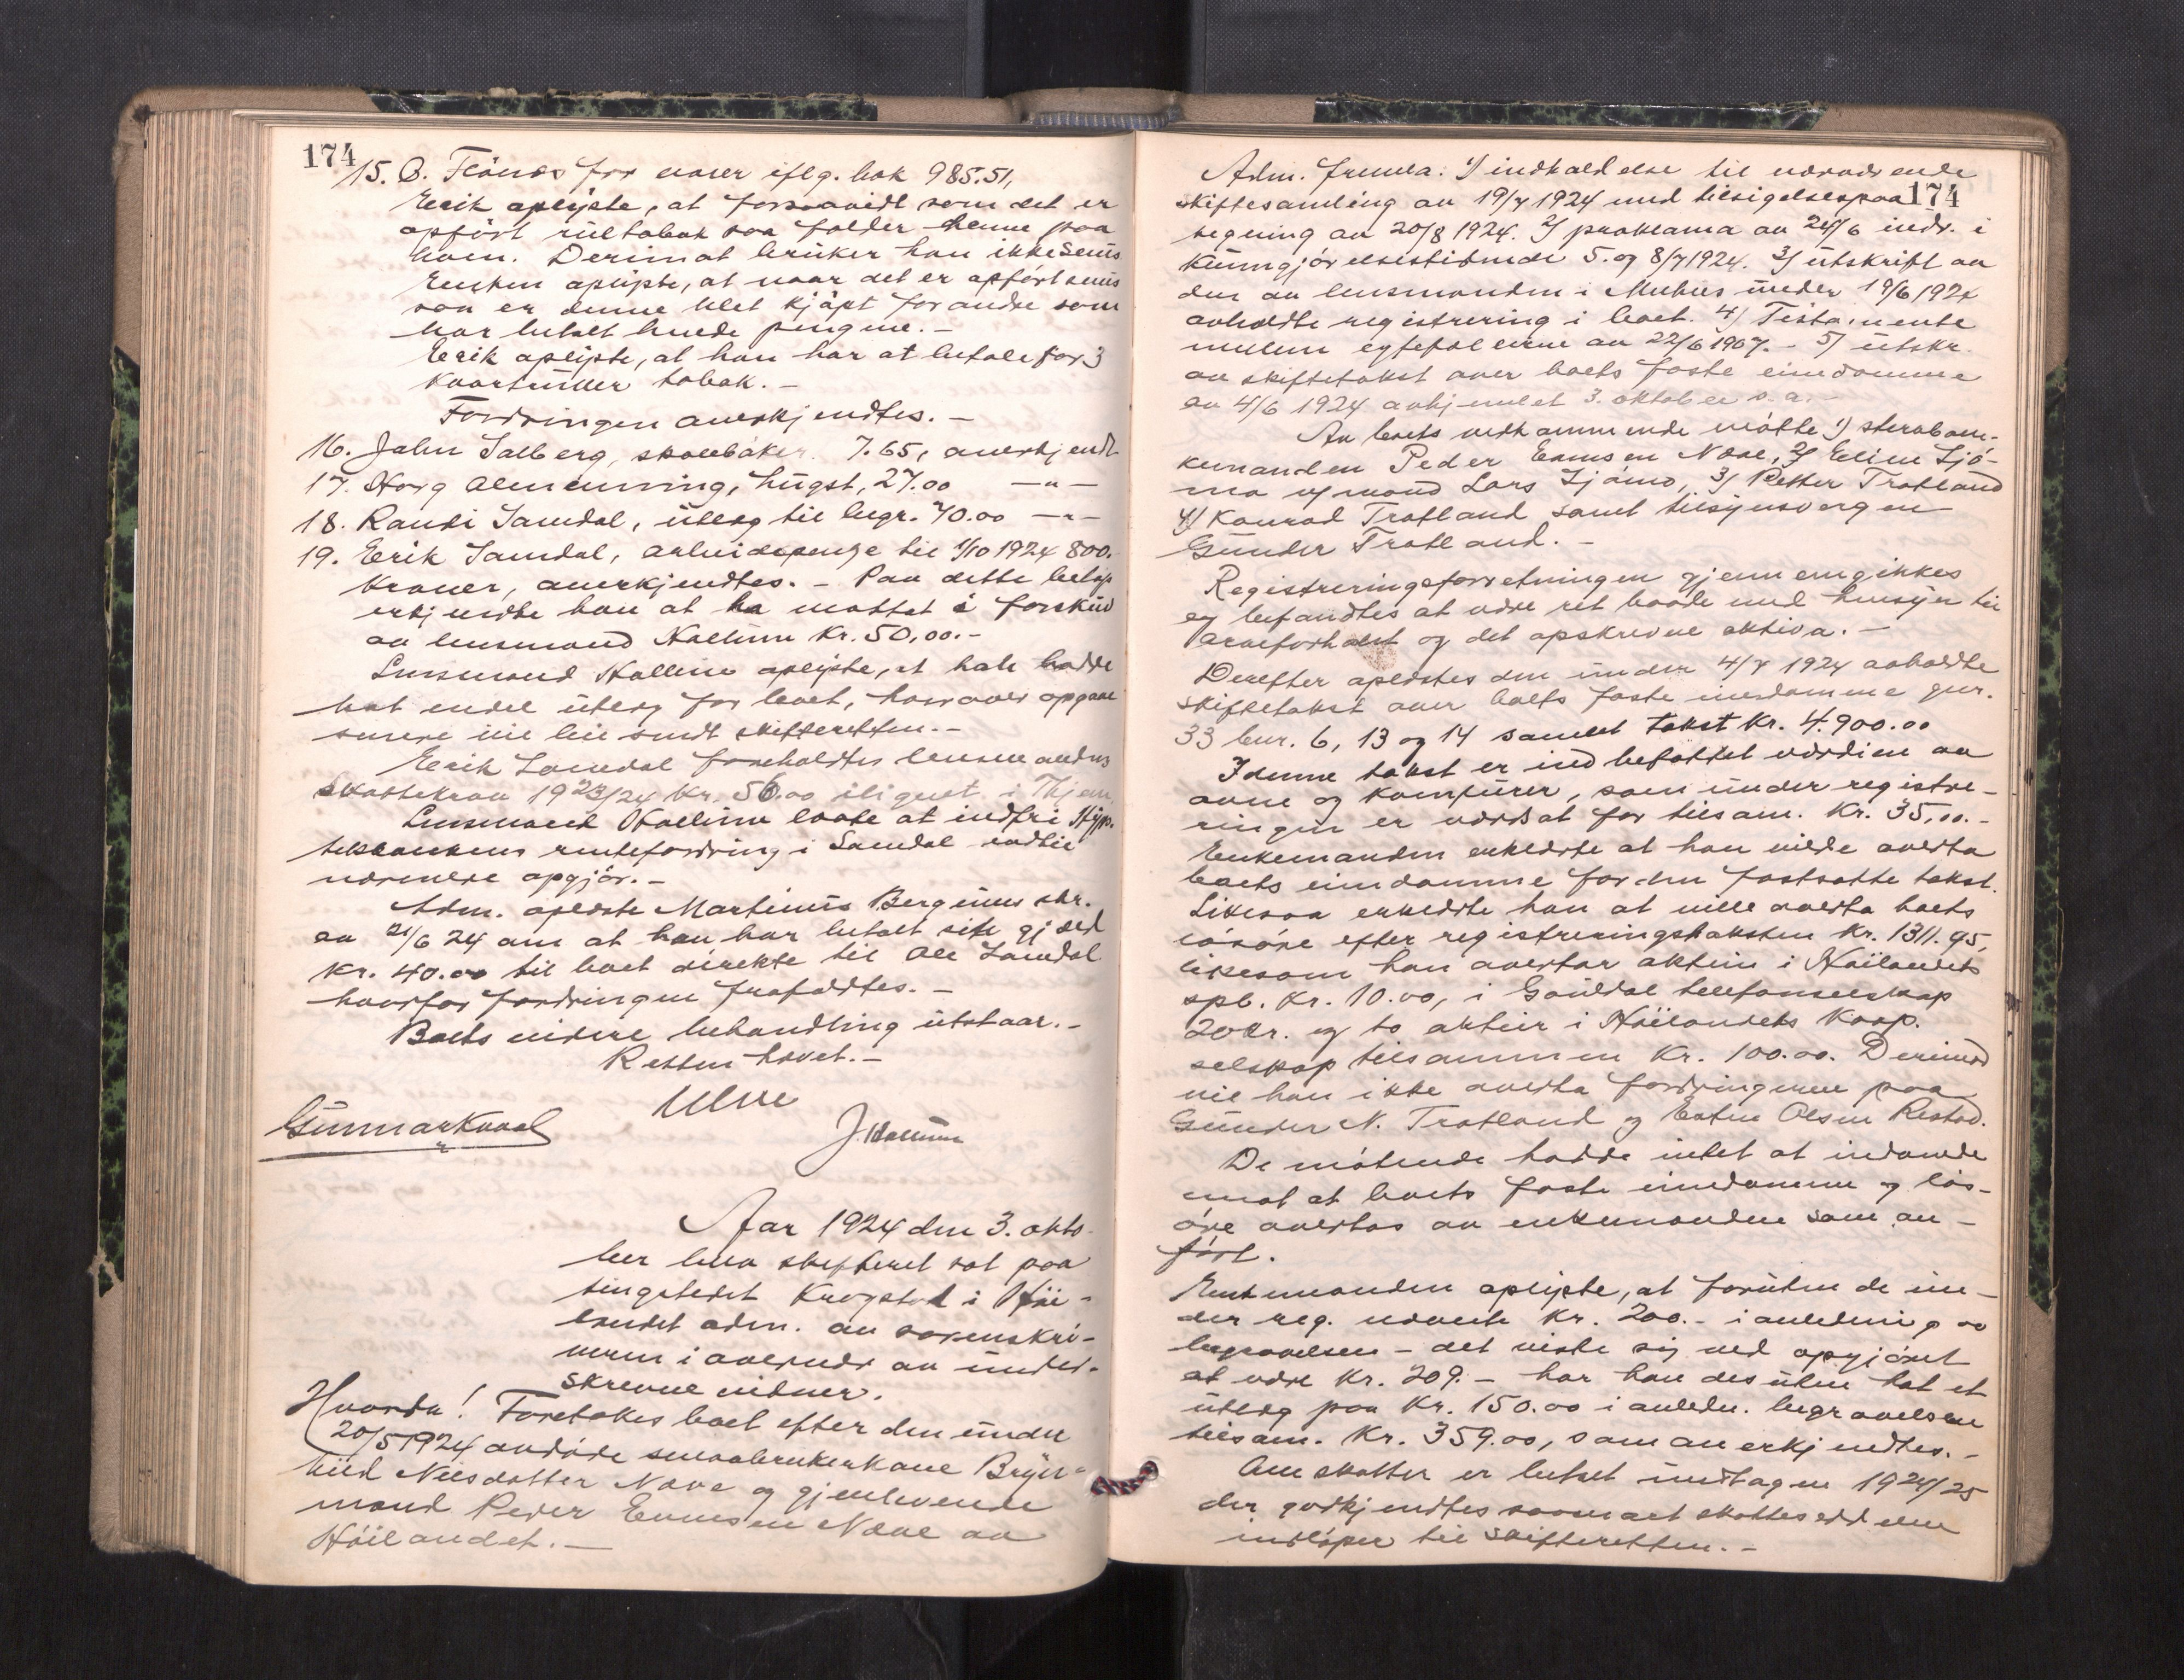 174
15. O. Flønes for varer iflg. bok 985.51,
Erik oplyste, at forsaavidt som det er
opført rultobak saa falder denne paa
ham. Derimot bruker han ikke snus
Enken oplyste, at naar det er opført snus
saa er denne blet kjøpt for andre som
har betalt hende pengene. -
Erik oplyste, at han har at betale for 3
kvartruller tobak. -
Fordringen anerkjendtes. -
16. John Solberg, skolebøker. 7.65, anerkjendt
17. Horg Almenning, hugst, 27.00 -"-
18. Randi Samdal, utlæg til begr. 70.00 -"-
19. Erik Samdal, arbeidspenge til 1/10 1924 800.-
kroner, anerkjendtes. - Paa dette beløp
erkjendte han at ha mottat i forskud
av lensmand Kollum Kr. 50,00. -
Lensmand Kollum oplyste, at han hadde
hat endel utlæg for boet, hvorover opgave
senere vil bli sendt skifteretten. -
Erik Samdal foreholdtes lensmandens
skattekrav 1923/24 Kr. 56.00 ilignet i
Lensmand Kollum lovte at indfri Hyp.
tekbankens rentefordring i Samdal indtil
nærmere opgjør. -
Adm. oplæste Martinus Bergemus skr.
av 21/6 24 om at han har betalt sit gjæld
Kr. 40.00 til boet direkte til Ole Samdal
hvorfor fordringen frafaldtes. -
Boets videre behandling utstaar. -
Retten hævet. -
Ulve
Gunnar Kvaal
J. Kollum
Aar 1924 den 3. okto-
ber blev skifteret sat paa
tingstedet Krogstad i Høi-
landet adm. av sorenskri-
veren i overvær av under-
skrevne vidner.
Hvorda! Foretokes boet efter den under
20/5 1924 avdøde smaabrukerkone Bryn-
hild Nilsdatter Næve og gjenlevende
mand Peder Evensen Næve av
Höilandet. -
Adm. fremla: 1) indkaldelse til nærværende
174
skiftesamling av 19/7 1924 med tilsigelsespaa
tegning av 20/8 1924. 2) proklama av 24/6 indr. i
Kunngjörelsestidende 5. og 8/7 1924. 3) utskrift av
den av lensmanden i Melhus under 19/6 1924
avholdte registrering i boet. 4) Testamente
mellem egtefolkene av 22/6 1907. - 5) utskr.
av skiftetakst over boets faste eiendomme
av 4/6 1924 avhjemlet 3. oktober s.a. -
Av boets vedkommende møtte 1) sterboen-
kemanden Peder Evensen Næve, 2) Eline Sjö-
mo og mand Lars Sjömo, 3) Petter Trotland
4) Konrad Trotland samt tilsynsvergen
Gunder Trotland. -
Registreringsforretningen gjennemgikkes
og befandtes at være ret baade med hensyn til
arveforholdet og det opskrevne aktiva. -
Derefter oplæstes den under 4/7 1924 avholdte
skiftetakst over boets faste eiendomme gnr.
33 bnr. 6, 13 og 14 samlet takst Kr. 4.900.00
I denne takst er indbefattet værdien av
ovne og komfurer, som under registre-
ringen er værdsat for tilsam. Kr. 35,00. -
Enkemanden erklærte at han vilde overta
boets eiendomme for den fastsatte takst.
Likesaa erklærte han at ville overta boets
løsøre efter registreringstaksten Kr. 1311.95,
likesom han overtar aktien i Höilandets
spb. Kr. 10.00, i Gauldal telefonselskap
20 kr. og to aktier i Höilandets Koop.
selskap tilsammen Kr. 100.00. Derimod
vil han ikke overta fordringerne paa
Gunder N. Trotland og Esten Olsen Restad.
De møtende hadde intet at indvende
mot at boets faste eiendomme og løs-
øre overtas av enkemanden som an-
ført.
Enkemanden oplyste, at foruten de un-
der reg. nævnte Kr. 200.- i anledning av
begravelsen - det viste sig ved opgjøret
at være Kr. 209.- har han desuten hat et
utlæg paa Kr. 150.00 i anledn. begravelsen
tilsam. Kr. 359.00, som anerkjendtes. -
Alle skatter er betalt undtagen 1924/25
der godkjendtes saasnart skatteseddelen
indløper til skifteretten. -